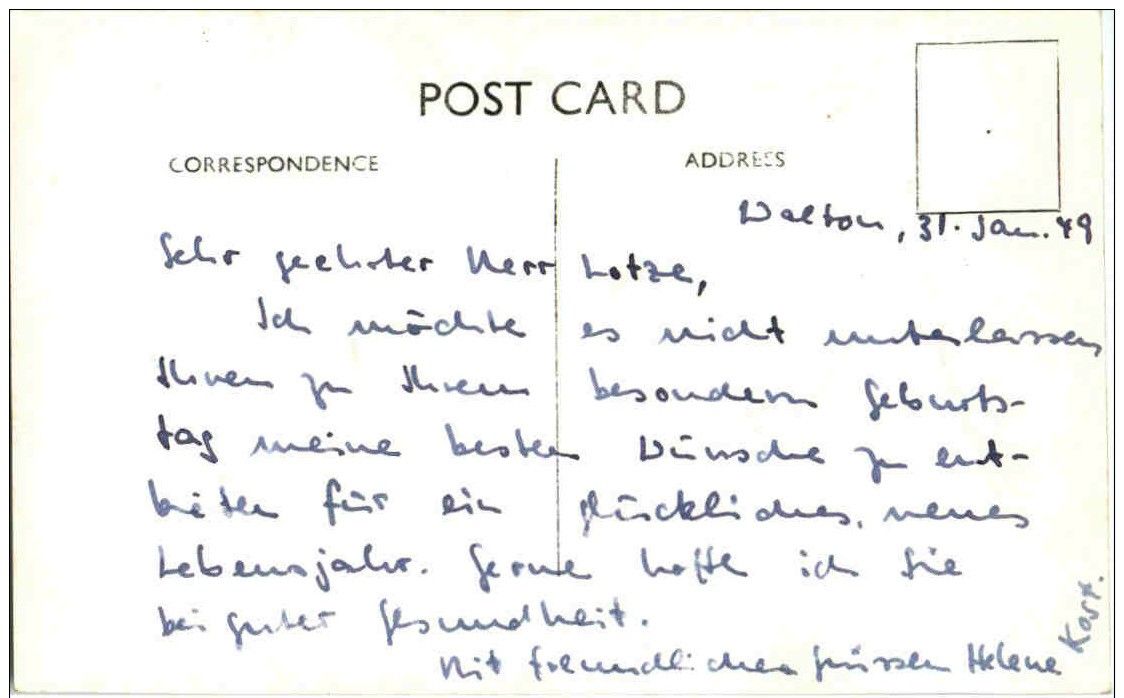 POST CARD
CORRESPONDENCE ADDRESS
Walton, 31. Jan. 49
Sehr geehrter Herr Lotze,
Ich möchte es nicht unterlassen
Ihnen zu Ihrem besondern Geburts-
tag meine besten Wünsche zu ent-
bieten für ein glückliches, neues
Lebensjahr. Gerne hoffe ich Sie
bei guter Gesundheit.
Mit freundlichen Grüssen Helene
Kast.